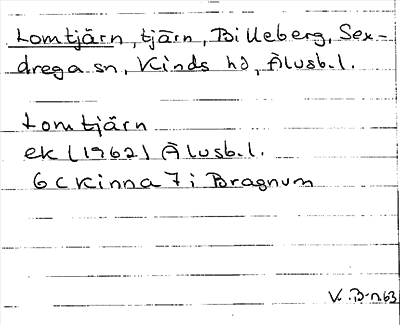 Lomtjärn, tjärn, Billeberg, Sex-
drega sn, Kinds hd, Älvsb. l.
Lomtjärn
ek (1962) Älvsb. l.
6 C Kinna 7 i Bragnum
V. B-n 63